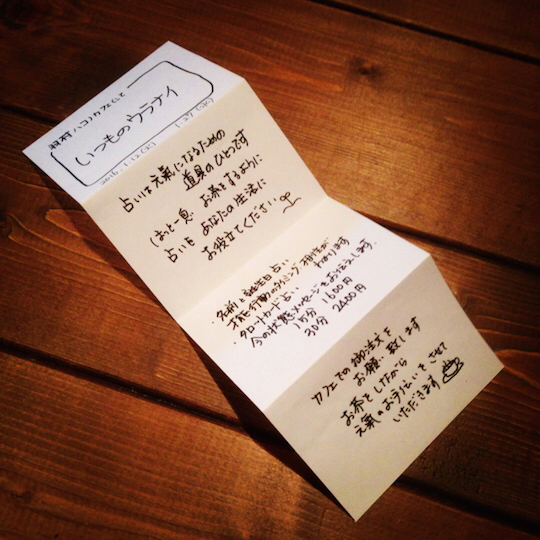 羽村 ハコノカフェにて
いつものウラナイ
2016.1.12(火) 1.27(水)
占いは 元気になるための
道具のひとつです
ほっと一息 お茶をするように
占いを あなたの生活に
お役立てください
・名前と誕生日占い
才能・行動のタイミング・相性が
わかります
・タロートカード占い
今の状態やメッセージをお伝えします。
15分 1600円
30分 2400円
カフェでの御注文を
お願い致します
お茶をしながら
元気のお手伝いをさせて
いただきます